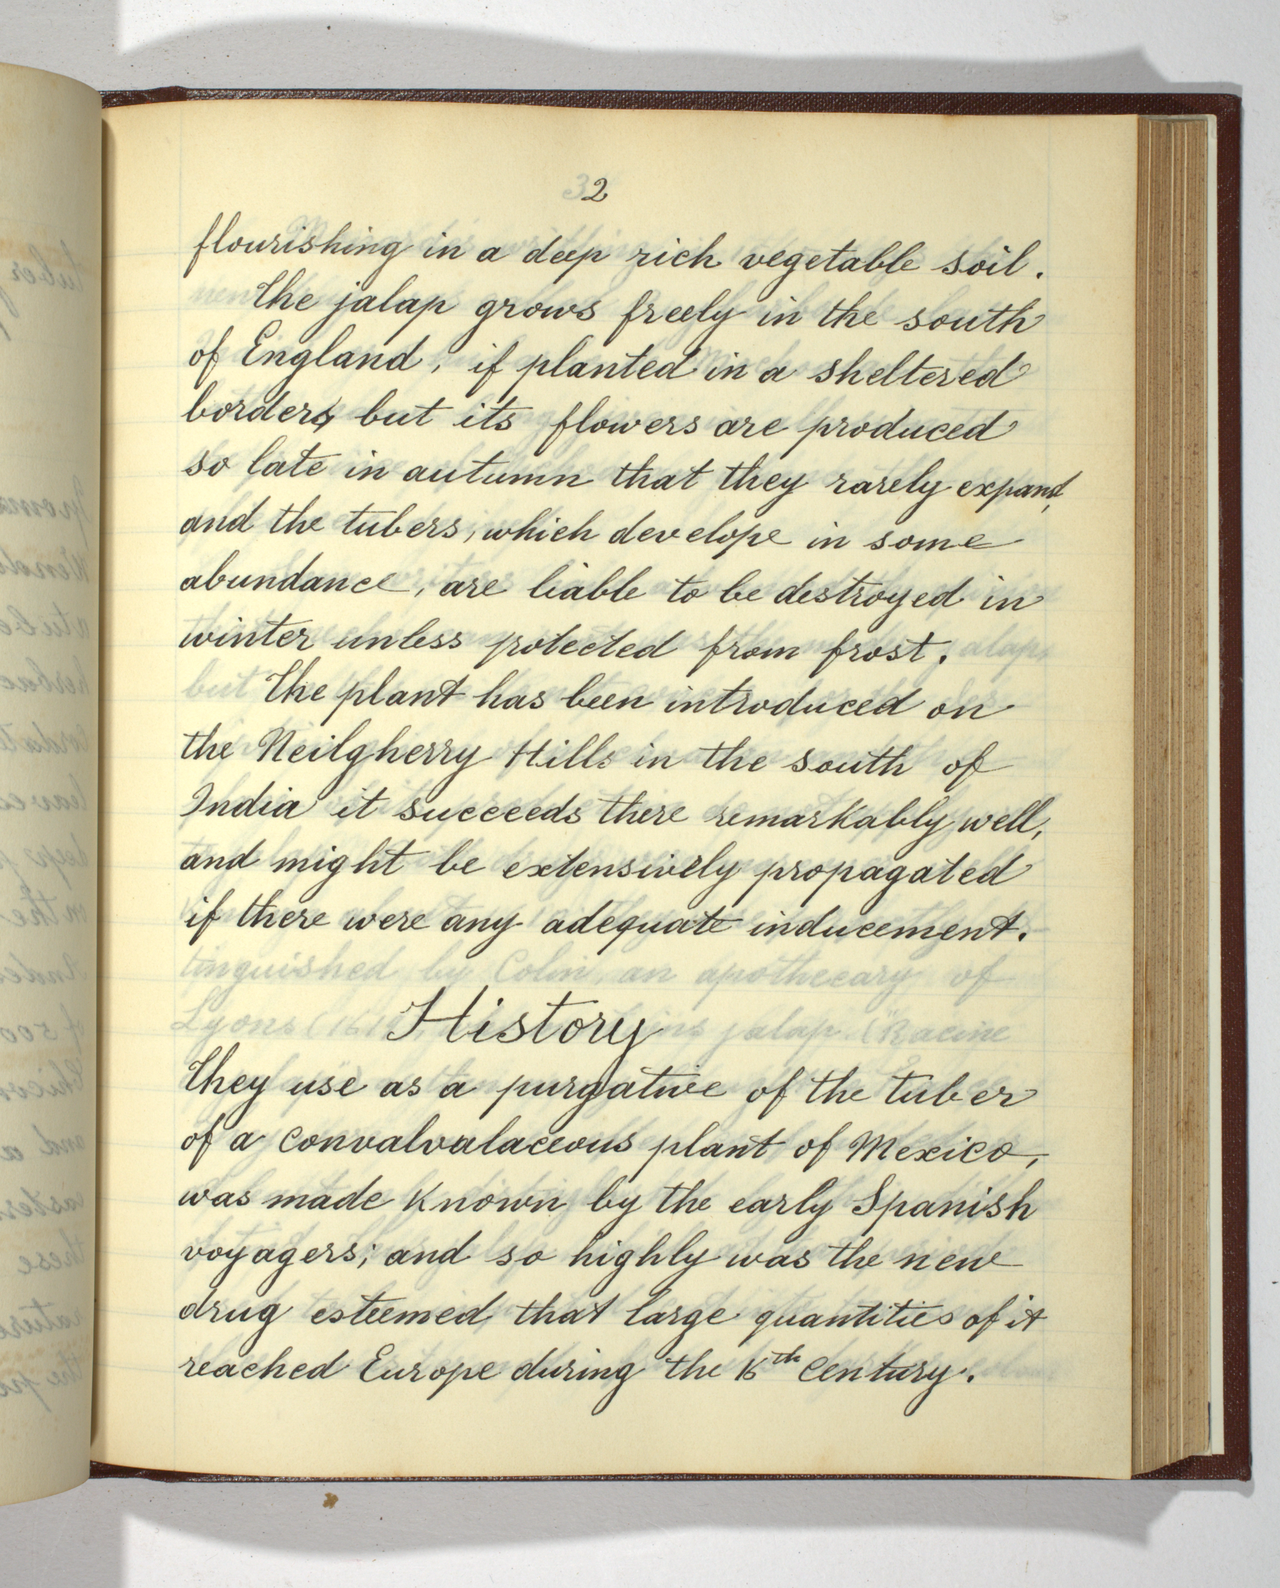 2
flourishing in a deep rich vegetable soil.
The jalap grows freely in the south
of England, if planted in a sheltered
border, but its flowers are produced
so late in autumn that they rarely expand,
and the tubers, which develope in some
abundance, are liable to be destroyed in
winter unless protected from frost.
The plant has been introduced on
the Neilgherry Hills in the south of
India it succeeds there remarkably well,
and might be extensively propagated
if there were any adequate inducement.
History
They use as a purgative of the tuber
of a convalvalaceous plant of Mexico,
was made known by the early Spanish
voyagers; and so highly was the new
drug esteemed that large quantities of it
reached Europe during the 16th century.